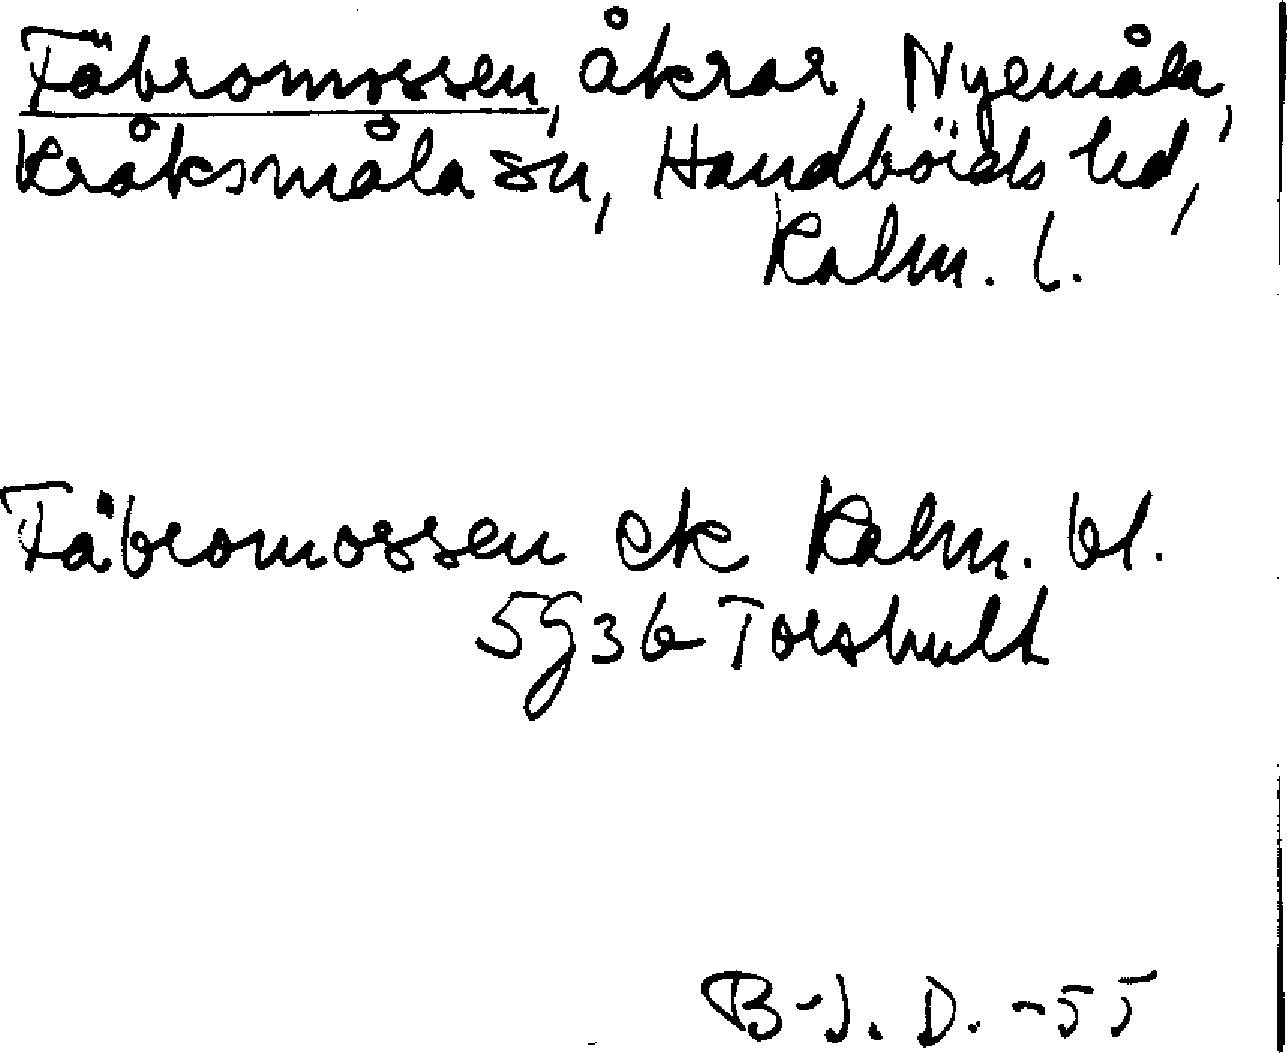 Fäbromossen, åkrar, Nyemåla,
Kråksmåla sn, Handbörds hd,
Kalm. l.
Fäbromossen ek Kalm. bl.
5g3b Torshult
B-J. D. -55